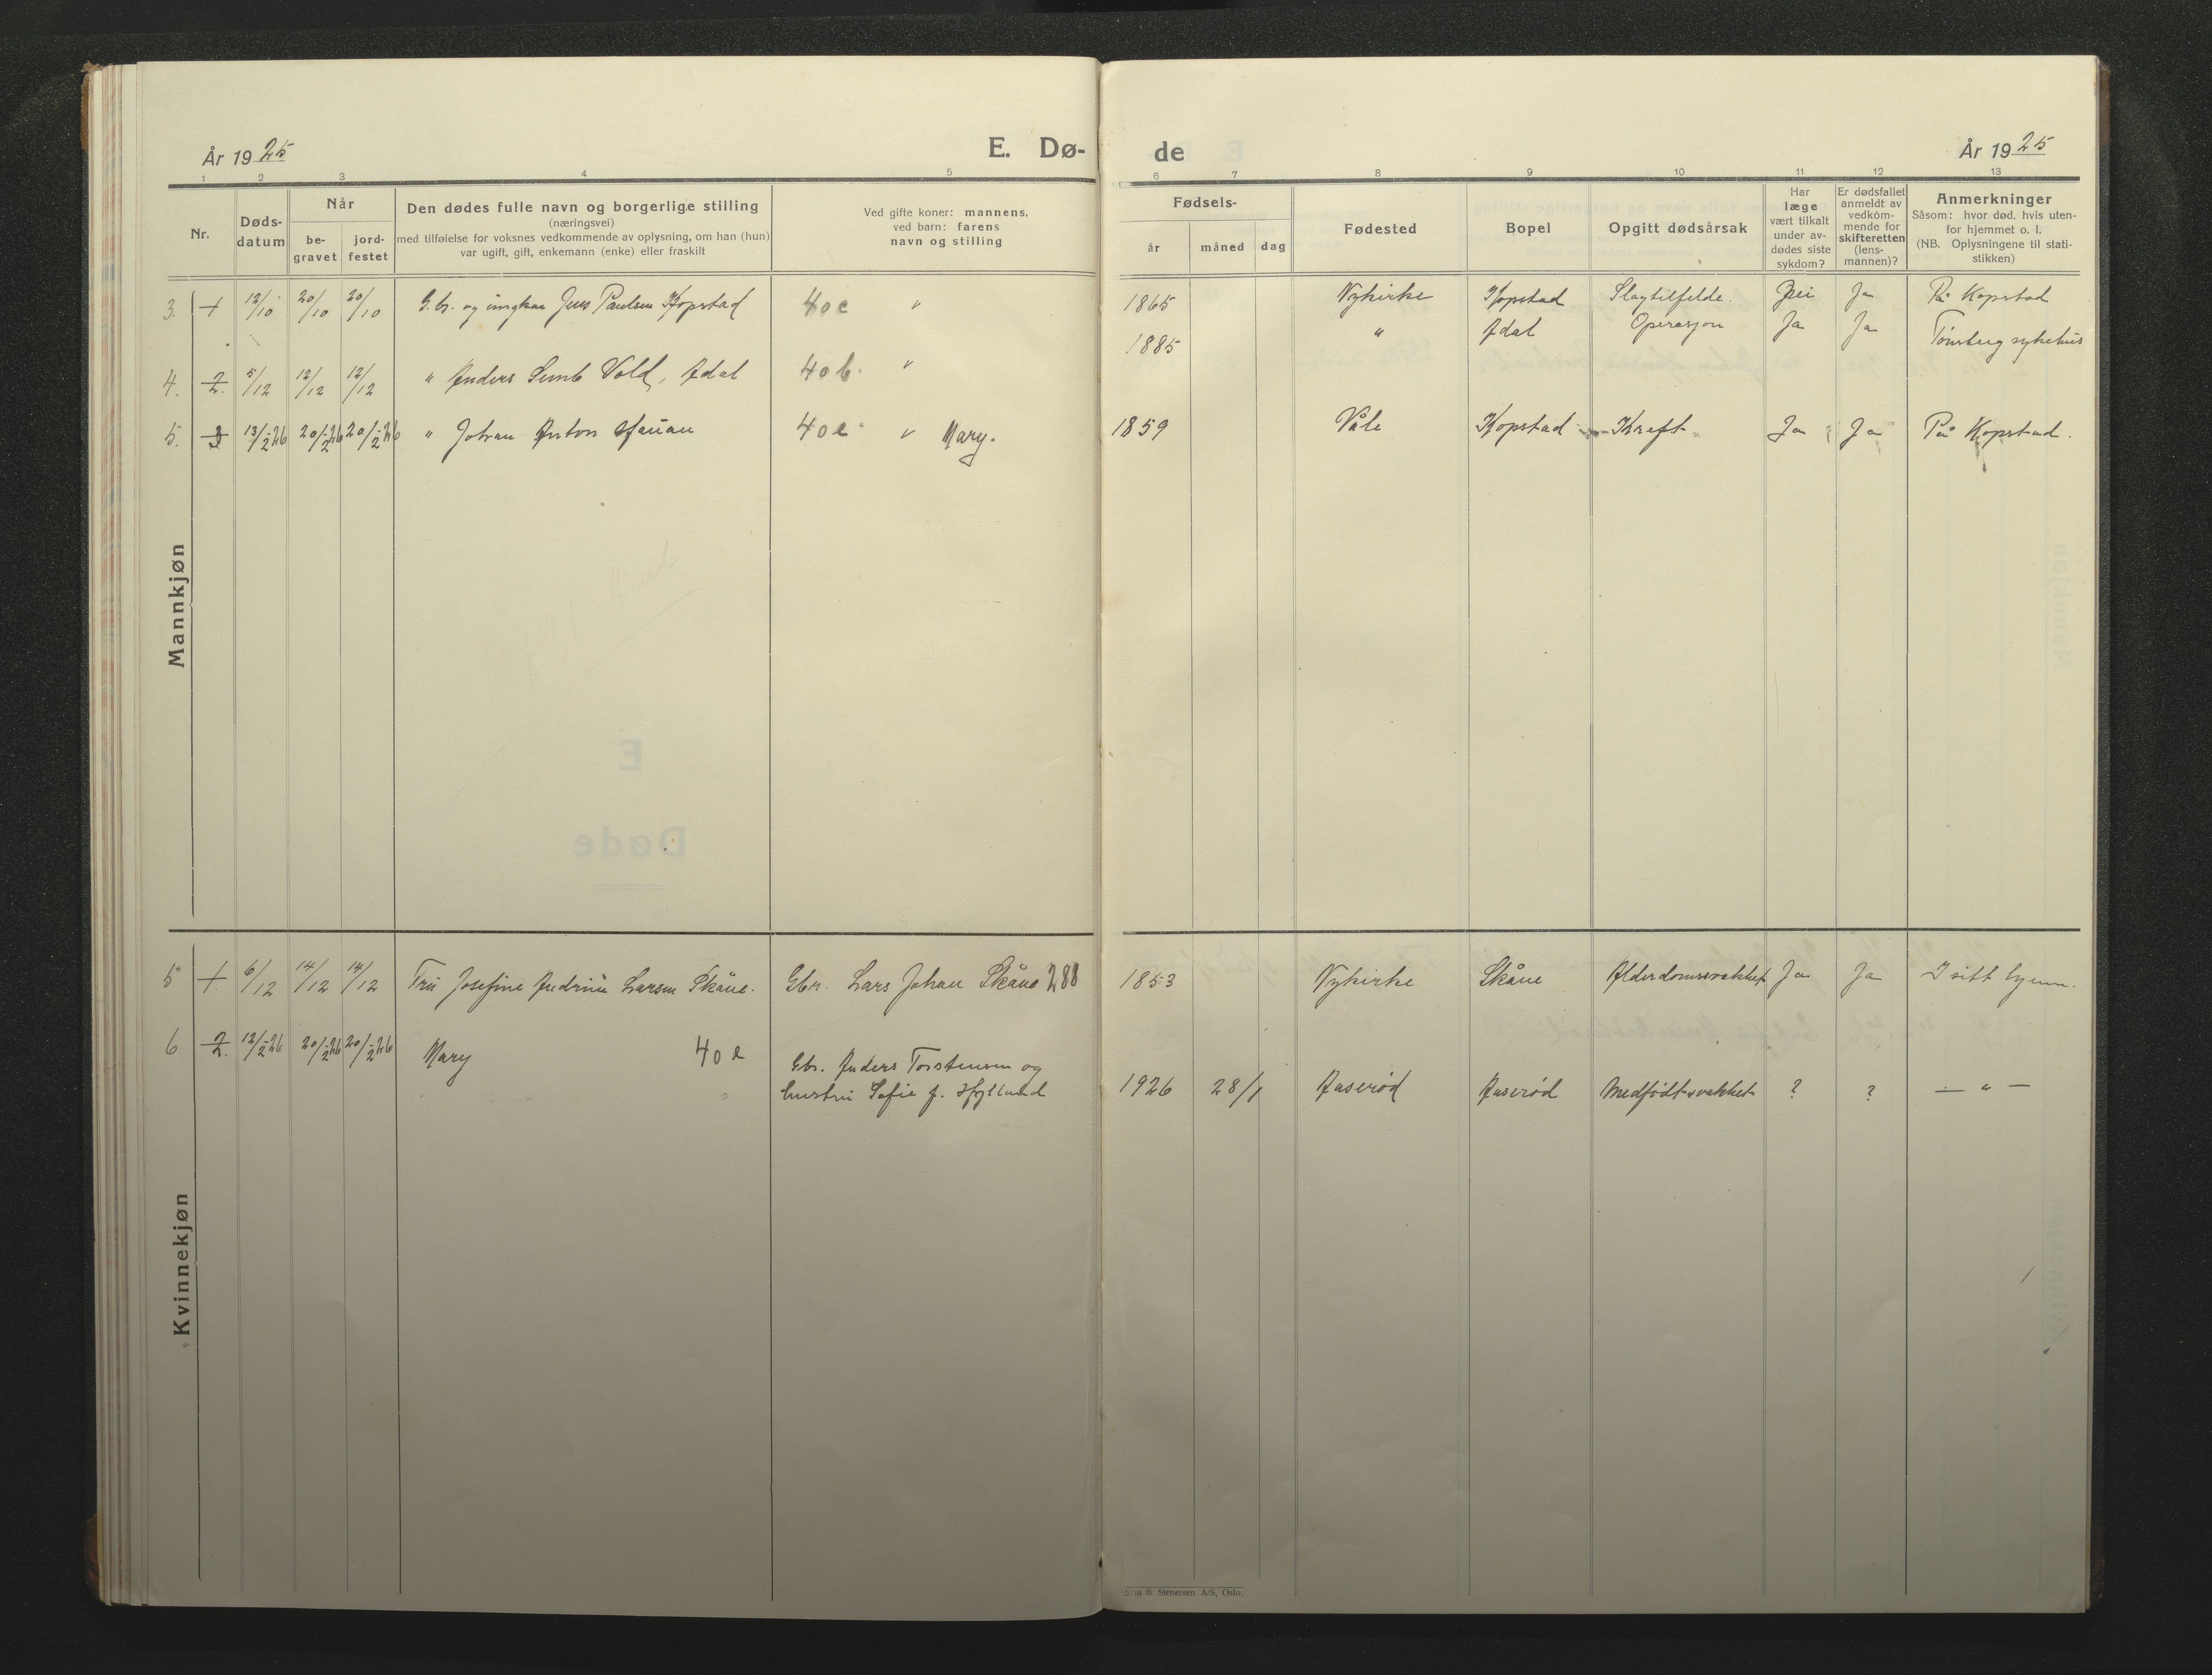 År 1925
E. Dø-
de
År 1925
1 2 3 4 5 6 7 8 9 10 11 12 13
Nr.
Døds-
datum
Når
be-
gravet
jord-
festet
Den dødes fulle navn og borgerlige stilling
(næringsvei)
med tilføielse for voksnes vedkommende av oplysning, om han (hun)
var ugift, gift, enkemann (enke) eller fraskilt
Ved gifte koner: mannens,
ved barn: farens
navn og stilling
Fødsels-
år måned dag
Fødested
Bopel
Opgitt dødsårsak
Har
læge
vært tilkalt
under av-
dødes siste
sykdom?
Er dødsfallet
anmeldt av
vedkom-
mende for
skifteretten
(lens-
mannen)?
Anmerkninger
Såsom: hvor død, hvis uten-
for hjemmet o. l.
(NB. Oplysningene til stati-
stikken)
Mannkjøn
3. 1 12/10 20/10 20/10 G.br. og ungkar Jens Paulsen Kopstad 40c " 1865 Nykirke Kopstad Slagtilfelde. Nei Ja På Kopstad
4. 2. 5/12 12/12 12/12 " Anders Semb Vold, Adal 40b. " 1885 " Adal Operasjon Ja Ja Tønsberg sykehus
5. 3 13/2-26 20/2-26 20/2-26 " Johan Anton Hauan 40e " Mary. 1859 Våle Kopstad Kreft Ja Ja På Kopstad.
Kvinnekjøn
5 1. 6/12 14/12 14/12 Fru Josefine Andrine Larsen Skåne. Gbr. Lars Johan Skåne 288 1853 Nykirke Skåne Alderdomssvakhet Ja Ja I sitt hjem.
6 2. 12/2-26 20/2-26 20/2-26 Mary 40e Gbr. Anders Torstensen og
hustru Sofie f. Hylland 1926 28/1 Aaserød Aaserød Medfødt svakhet ? ? — " —
Sem & Stenersen A/S, Oslo.